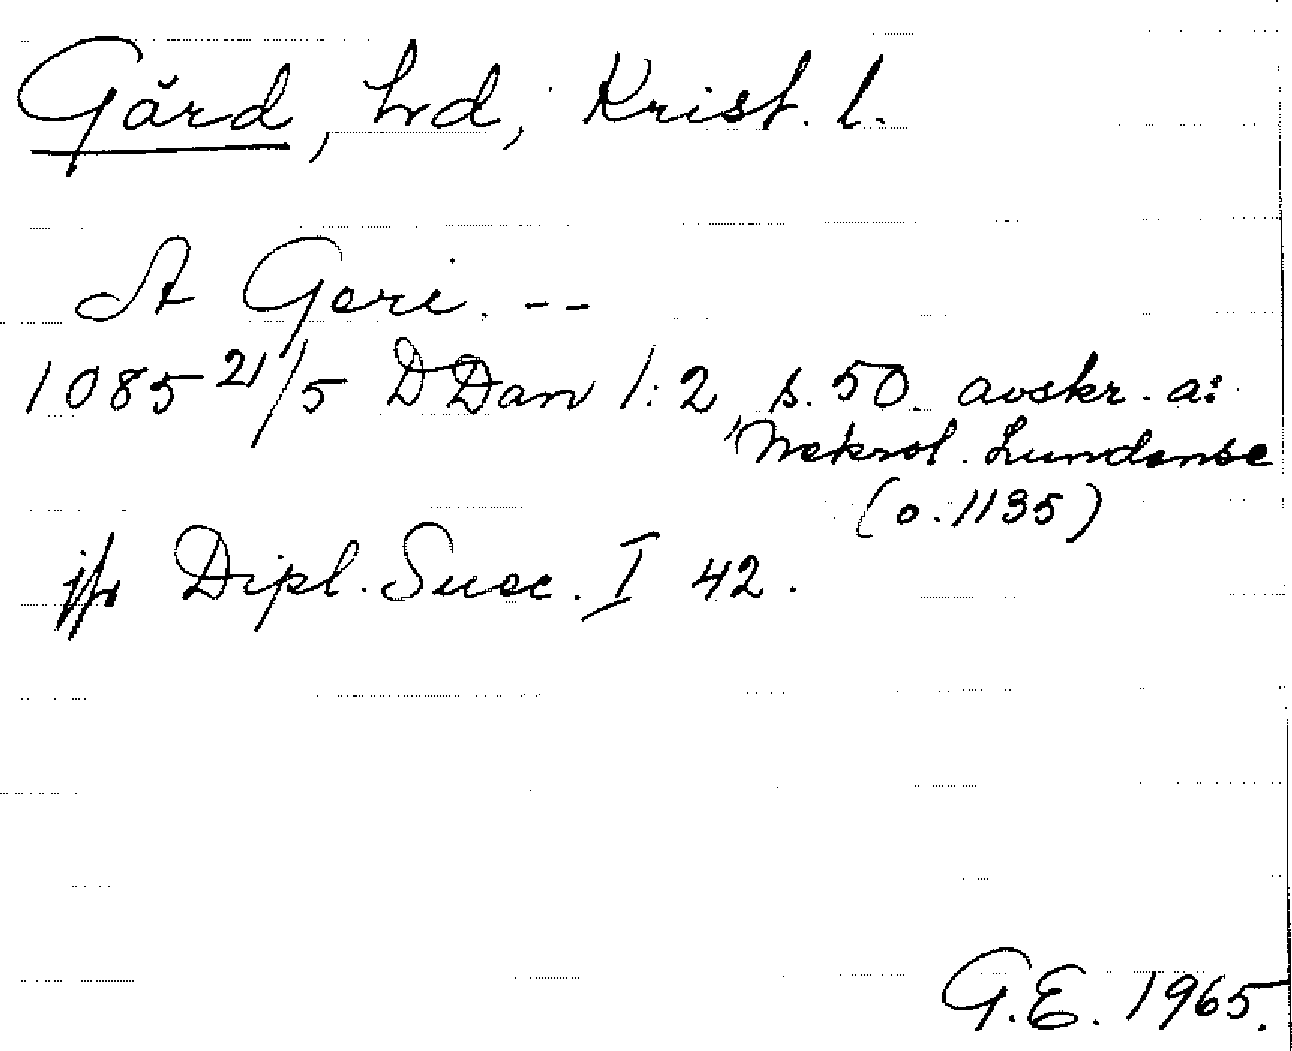 Gärd, hd, Krist. l.
A Geri. --
1085 21/5 DDan 1:2, s. 50. avskr. a:
Nekrol. Lundense
(o. 1135)
jfr Dipl. Suec. I 42.
G.E. 1965.